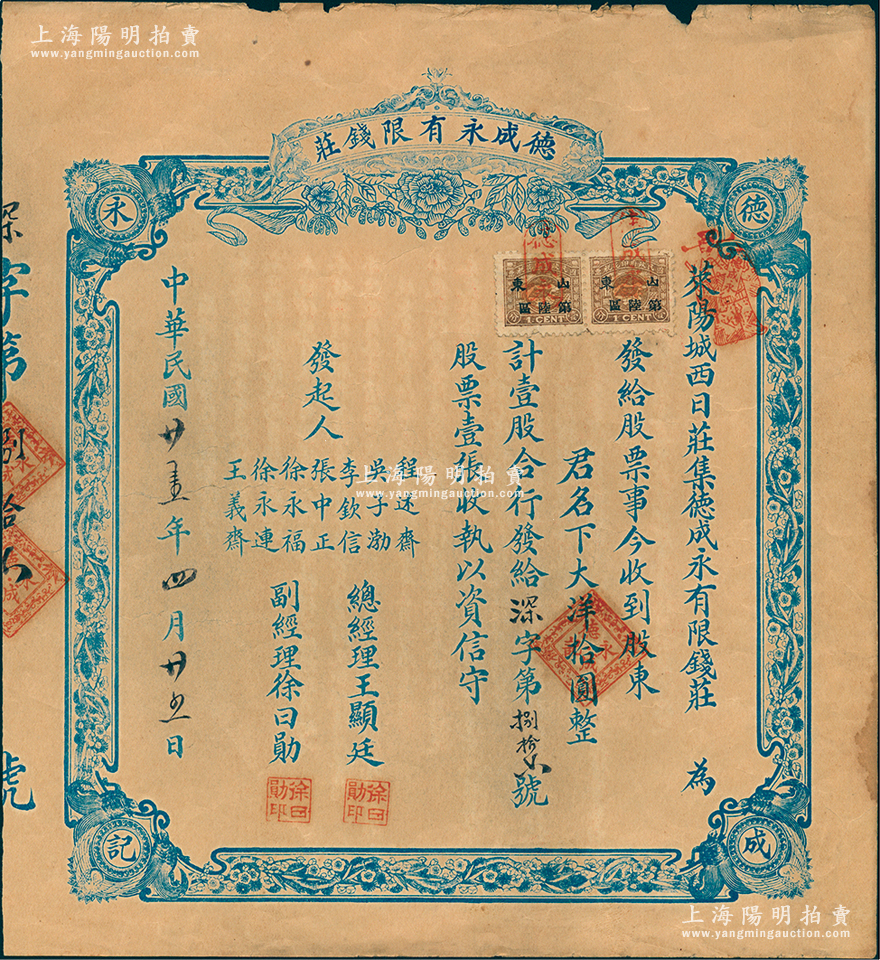 上海陽明拍賣
www.yangmingauction.com
德成永有限錢莊
德
成
永
記
萊陽城西日莊集德成永有限錢莊 為
發給股票事今收到股東
君名下大洋拾圓整
計壹股合行發給深字第捌拾 號
股票壹張收執以資信守
發起人
程述齋
吳子渤
李欽信
張中正
徐永福
徐永連
王義齋
總經理王顯廷
副經理徐曰勛
中華民國廿五年四月廿五日
山東
第陸區
1 CENT
山東
第陸區
1 CENT
德成
徐曰勛印
徐曰勛印
深字第捌拾 號
上海陽明拍賣
www.yangmingauction.com
上海陽明拍賣
www.yangmingauction.com